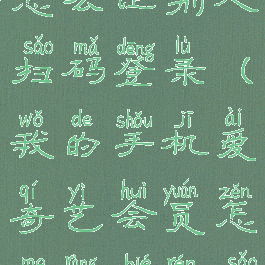 怎么让别人
sǎo mǎ dēng lù
扫码登录（
wǒ de shǒu jī ài
我的手机爱
qí yì huì yuán zěn
奇艺会员怎